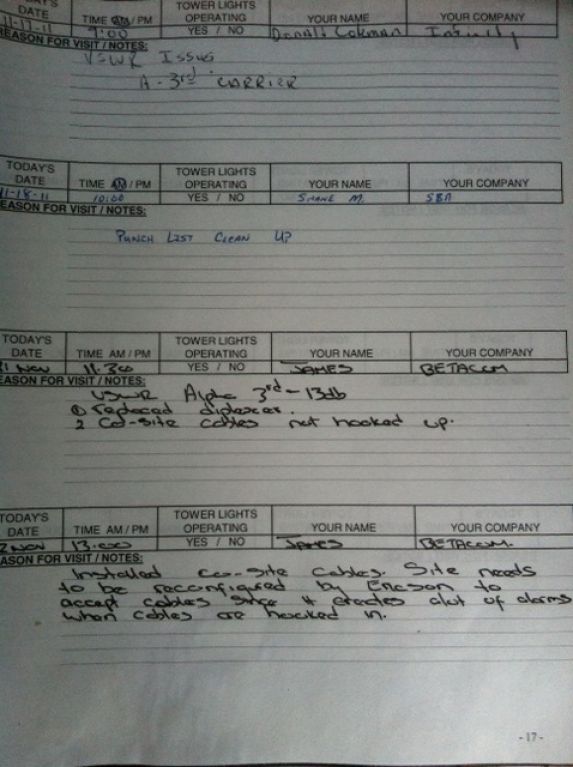 DATE TIME AM / PM TOWER LIGHTS OPERATING YOUR NAME YOUR COMPANY
11-17-11 9:00 YES / NO Donald Infinity
REASON FOR VISIT / NOTES:
VSWR Issue
A - 3rd CARRIER
TODAY'S DATE TIME AM / PM TOWER LIGHTS OPERATING YOUR NAME YOUR COMPANY
11-18-11 10:00 YES / NO SHANE M. SBA
EASON FOR VISIT / NOTES:
PUNCH LIST CLEAN UP
TODAY'S DATE TIME AM / PM TOWER LIGHTS OPERATING YOUR NAME YOUR COMPANY
1 NOV 11.30 YES / NO JAMES BETACOM
EASON FOR VISIT / NOTES:
VSWR Alpha 3rd - 13db
① replaced diplexer.
2 Co-site cables not hooked up.
TODAY'S DATE TIME AM / PM TOWER LIGHTS OPERATING YOUR NAME YOUR COMPANY
2 NOV 13.00 YES / NO JAMES BETACOM.
ASON FOR VISIT / NOTES:
Installed co-site cables. Site needs
to be reconfigured by Ericson to
accept cables since it creates alot of alarms
when cables are hooked in.
- 17 -